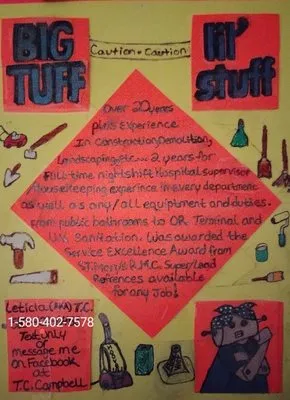 BIG
TUFF
Caution • Caution
lil'
Stuff
Over 20 years
plus Experience
In Construction Demolition,
Landscaping, Etc... 2 years for
Full-time nightshift Hospital supervisor
Housekeeping experince in every department
as well as any/all equiptment and duties.
From public bathrooms to OR Terminal and
Sanitation. Was awarded the
Service Excellence Award from
St. Mery's R.M.C. Super/Lead
Refrences available
for any Job!
Leticia (AKA) T.C.
1-580-402-7578
Text only
or
message me
on Facebook
at
T.C. Campbell